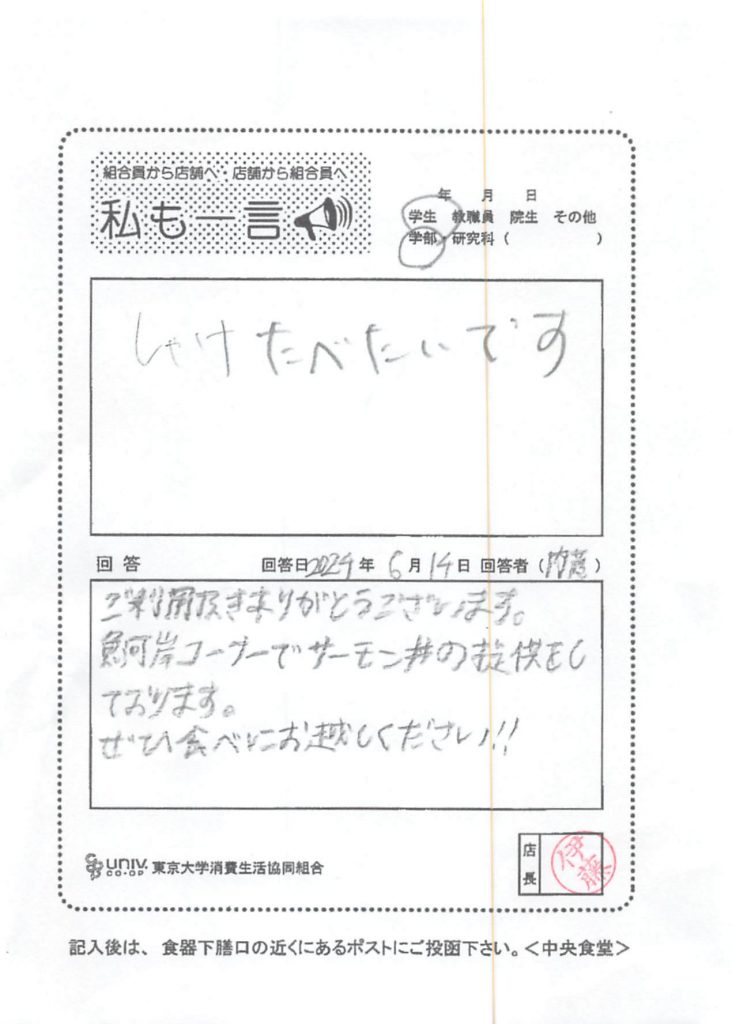 組合員から店舗へ・店舗から組合員へ
私も一言
年 月 日
学生 教職員 院生 その他
学部・研究科 ( )
しゃけたべたいです
回答 回答日2024年 6月14日 回答者(内藤)
ご利用頂きありがとうございます。
魚河岸コーナーでサーモン丼の提供をし
ております。
ぜひ食べにお越しください!!
UNIV. CO-OP 東京大学消費生活協同組合
店長
伊藤
記入後は、食器下膳口の近くにあるポストにご投函下さい。<中央食堂>